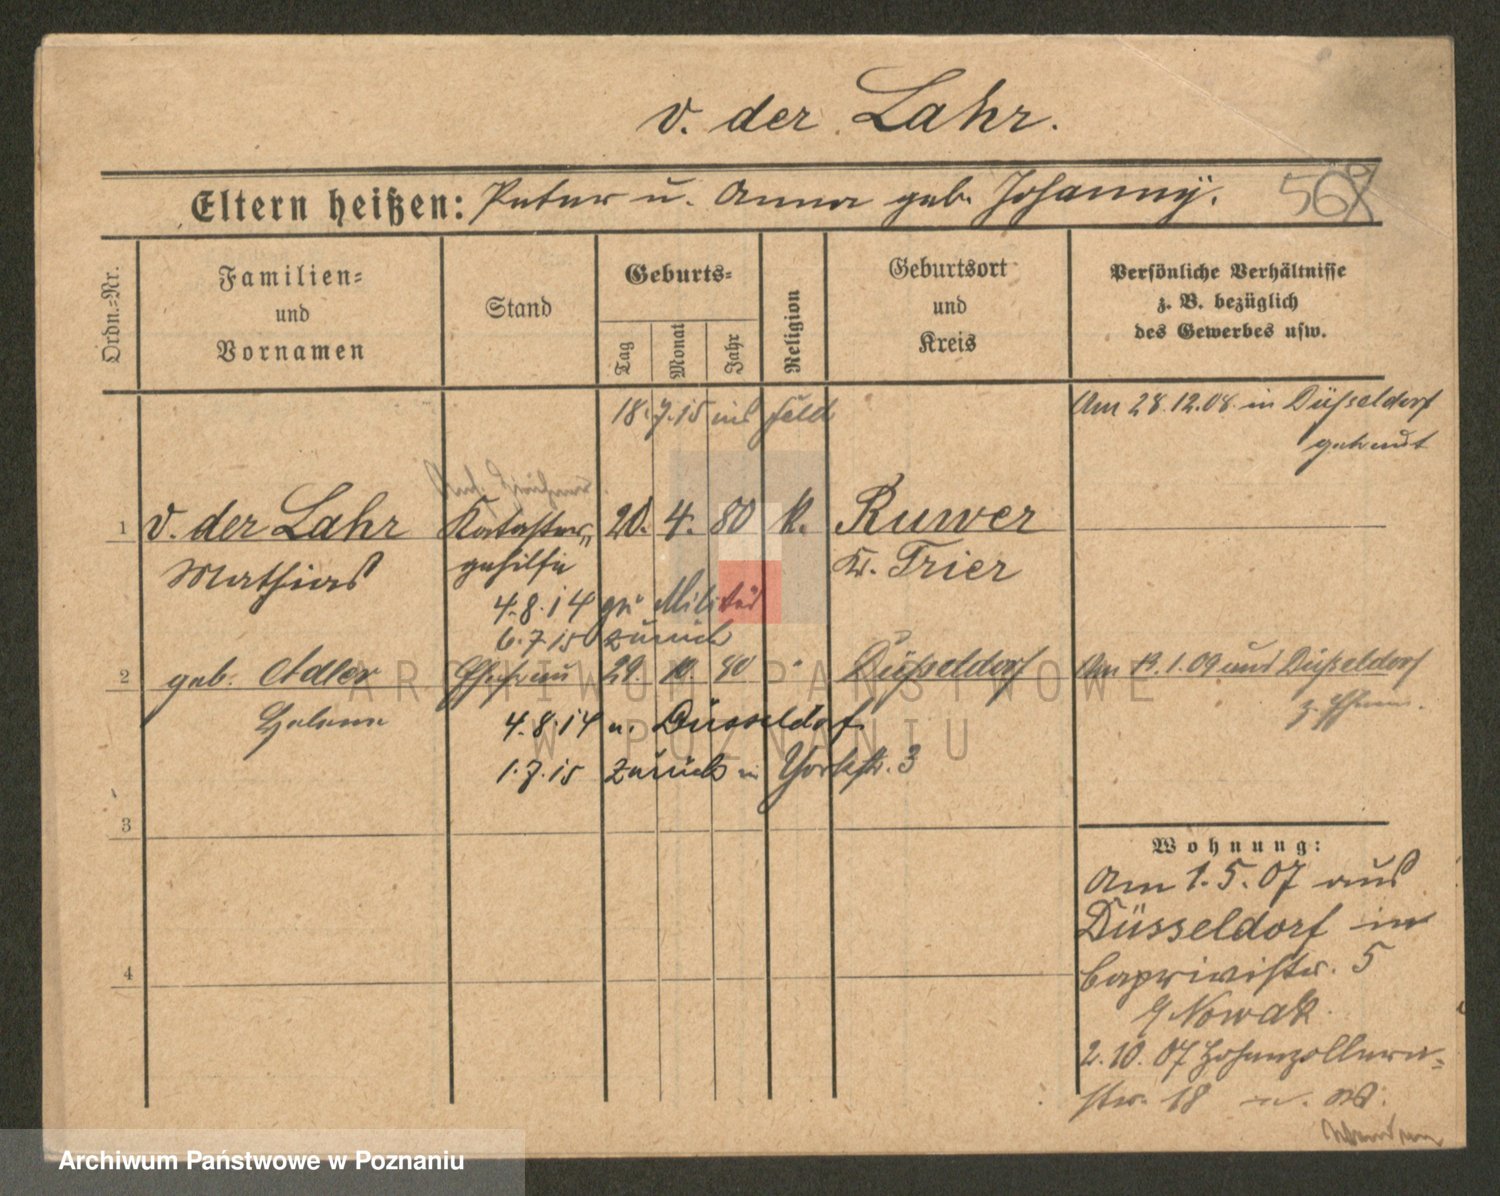 v. der Lahr.
Eltern heißen: Peter u. Anna geb. Johanny.
56
Ordn.=Nr.
Familien= und Vornamen
Stand
Geburts=
Tag
Monat
Jahr
Religion
Geburtsort und Kreis
Persönliche Verhältnisse z. B. bezüglich des Gewerbes usw.
18.7.15 ins Feld
Am 28.12.08. in Düsseldorf
getraut
1 v. der Lahr Kataster= 20. 4. 80 k. Ruwer
Mathias gehilfe Kr. Trier
4.8.14 zu Militär
6.7.15 zurück
2 geb. Adler Ehefrau 80 " Düsseldorf Am 1.09 aus Düsseldorf
Helene z. Ehem.
4.8.14 n. Düsseldorf
1.7.15 zurück in Yorkstr. 3
3
Wohnung:
Am 1.5.07 aus
Düsseldorf in
Caprivistr. 5
b/ Nowak
4
2.10.07 Hohenzollern=
str. 18
ARCHIWUM PAŃSTWOWE
W POZNANIU
Archiwum Państwowe w Poznaniu